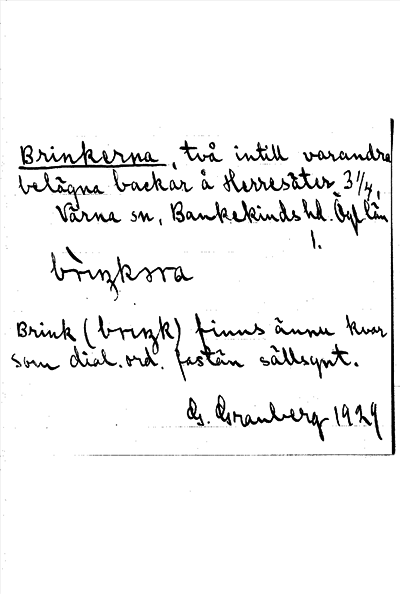 Brinkerna, två intill varandra
belägna backar å Herresäter 3 1/4,
Värna sn, Bankekinds hd. Ögl län
1.
brìŋkəɳa
Brink (brıŋk) finns ännu kvar
som dial. ord. fastän sällsynt.
G. Granberg 1929